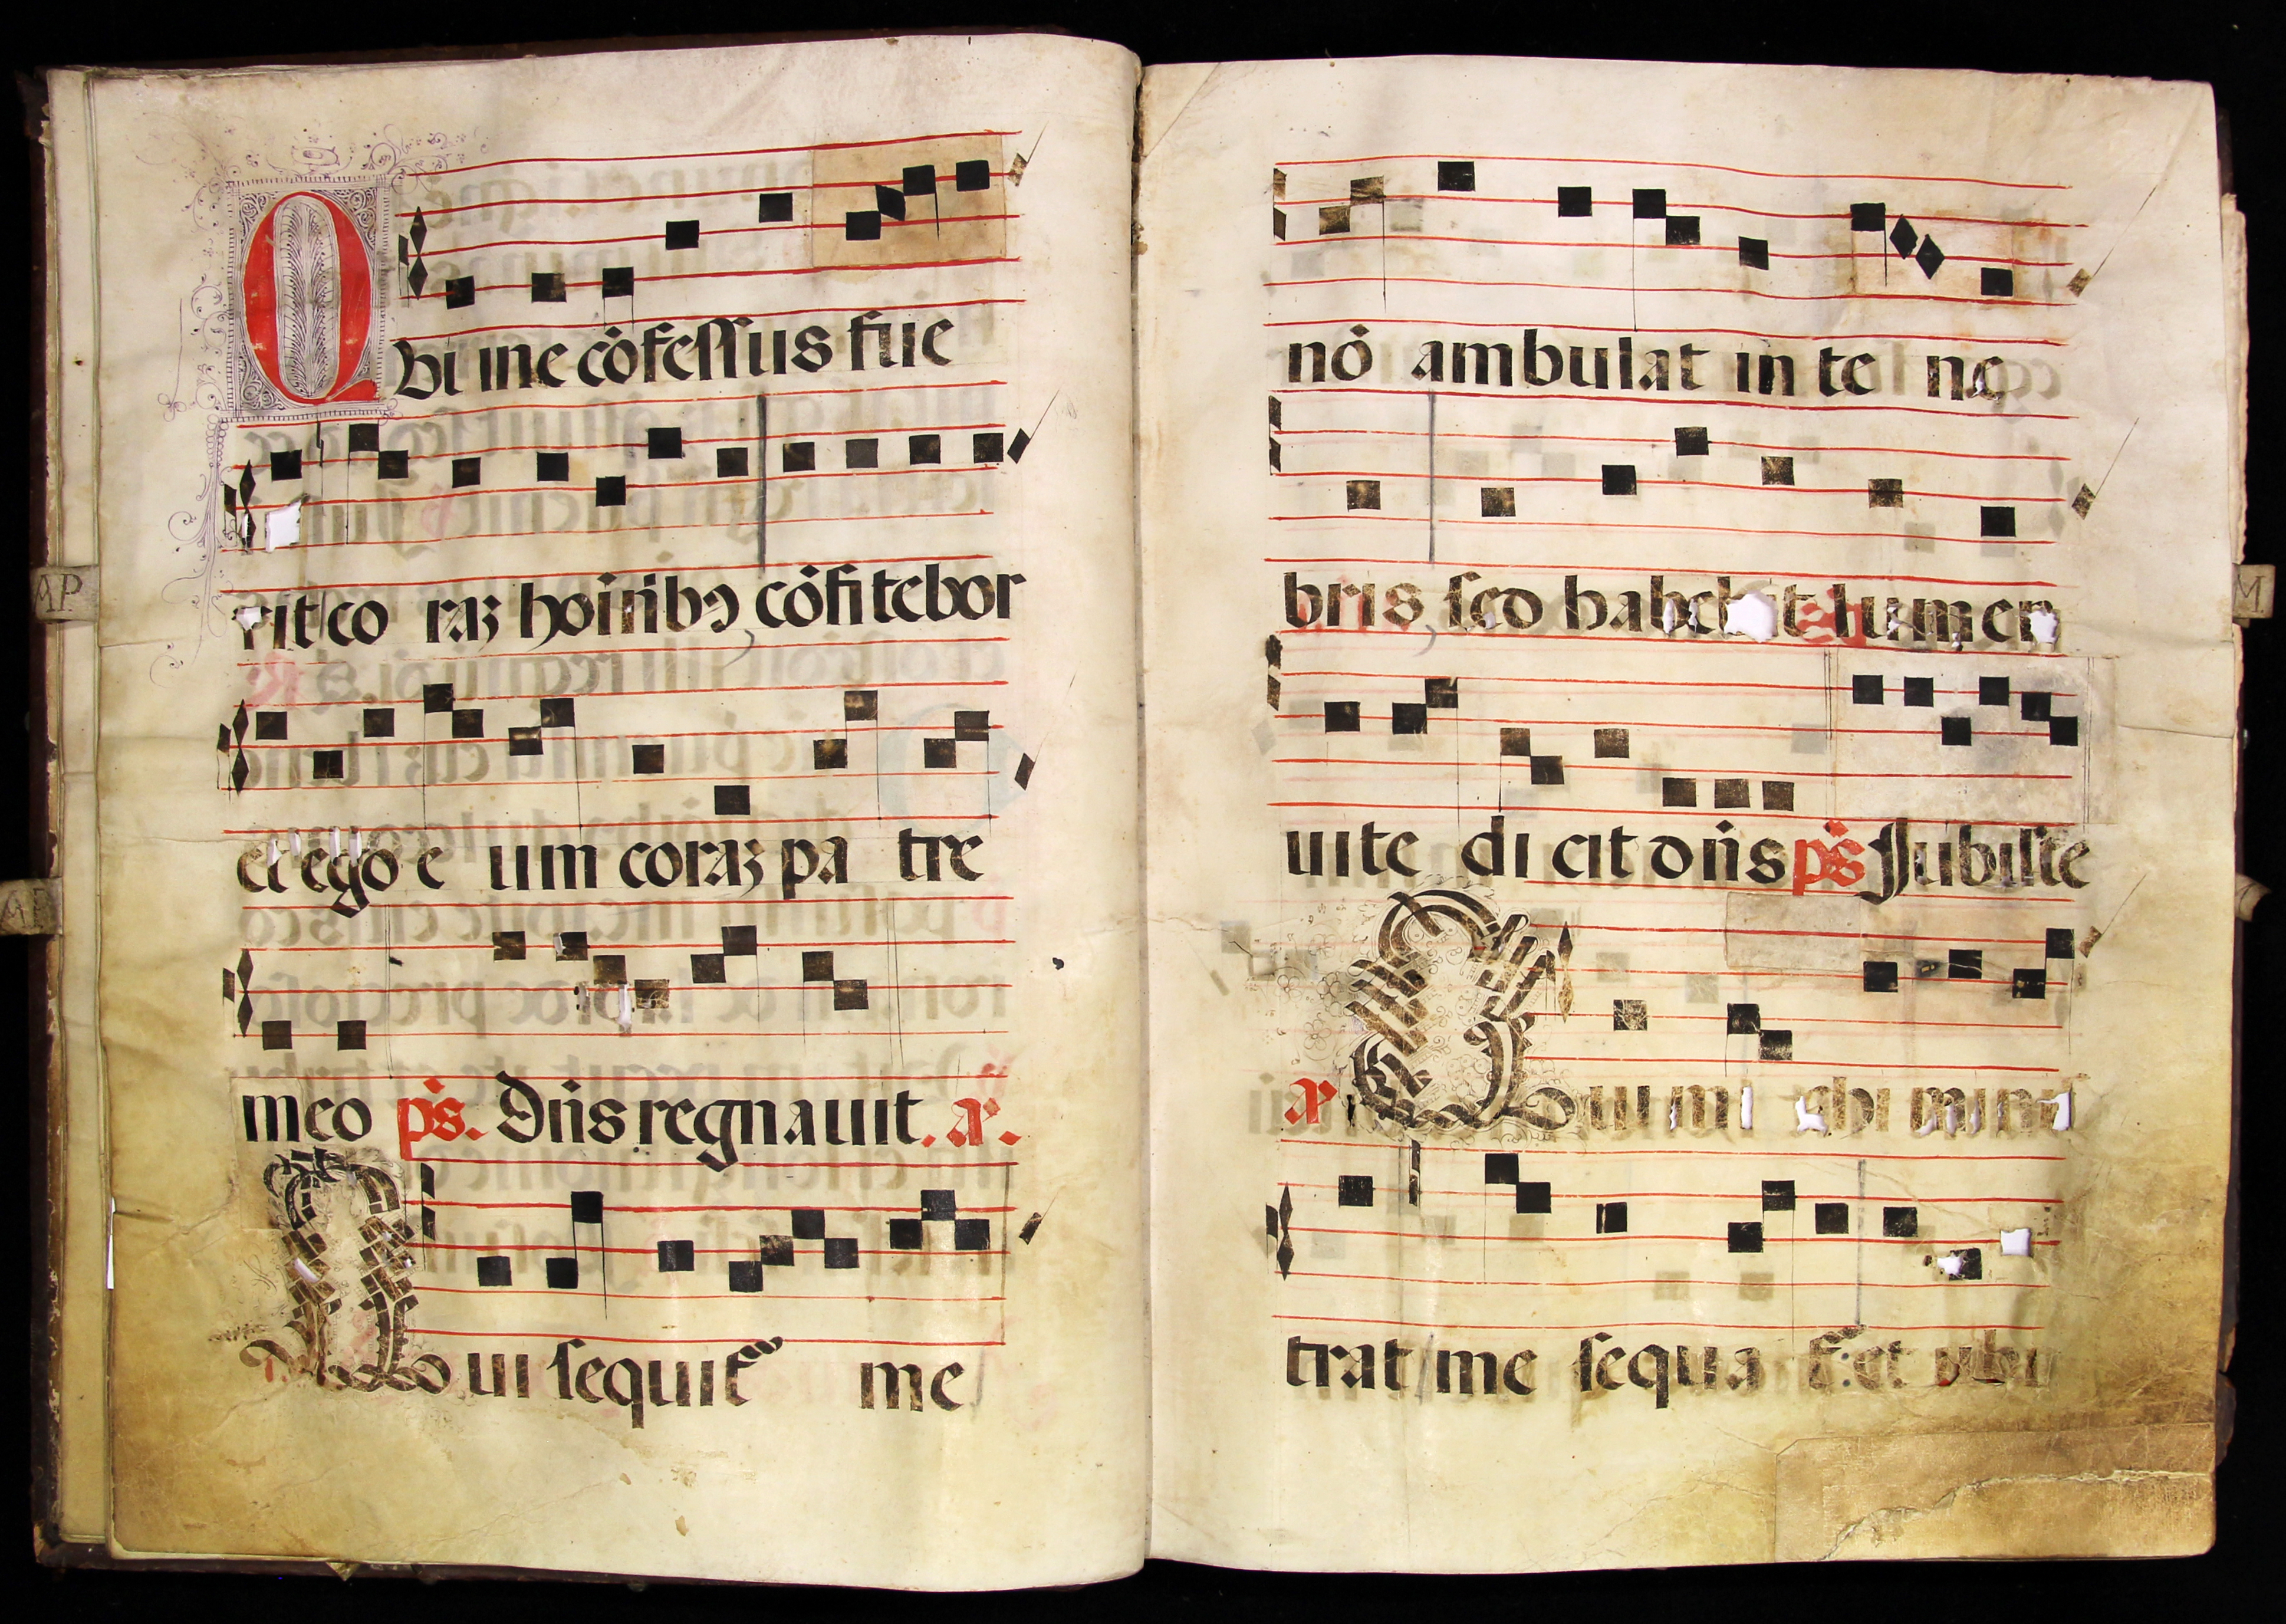 Qbi me cōfessus fue
rit co raʒ hoīnibꝯ cōfitebor
et ego e um coraʒ pa tre
meo ps. Dn̄s regnauit. a.
Qui sequit me
nō ambulat in te ne
bris sed habebit lumen
uite di cit dn̄s ps Jubilate
a Qui mi chi minis
trat me sequa t̄: et ubi
AP
M